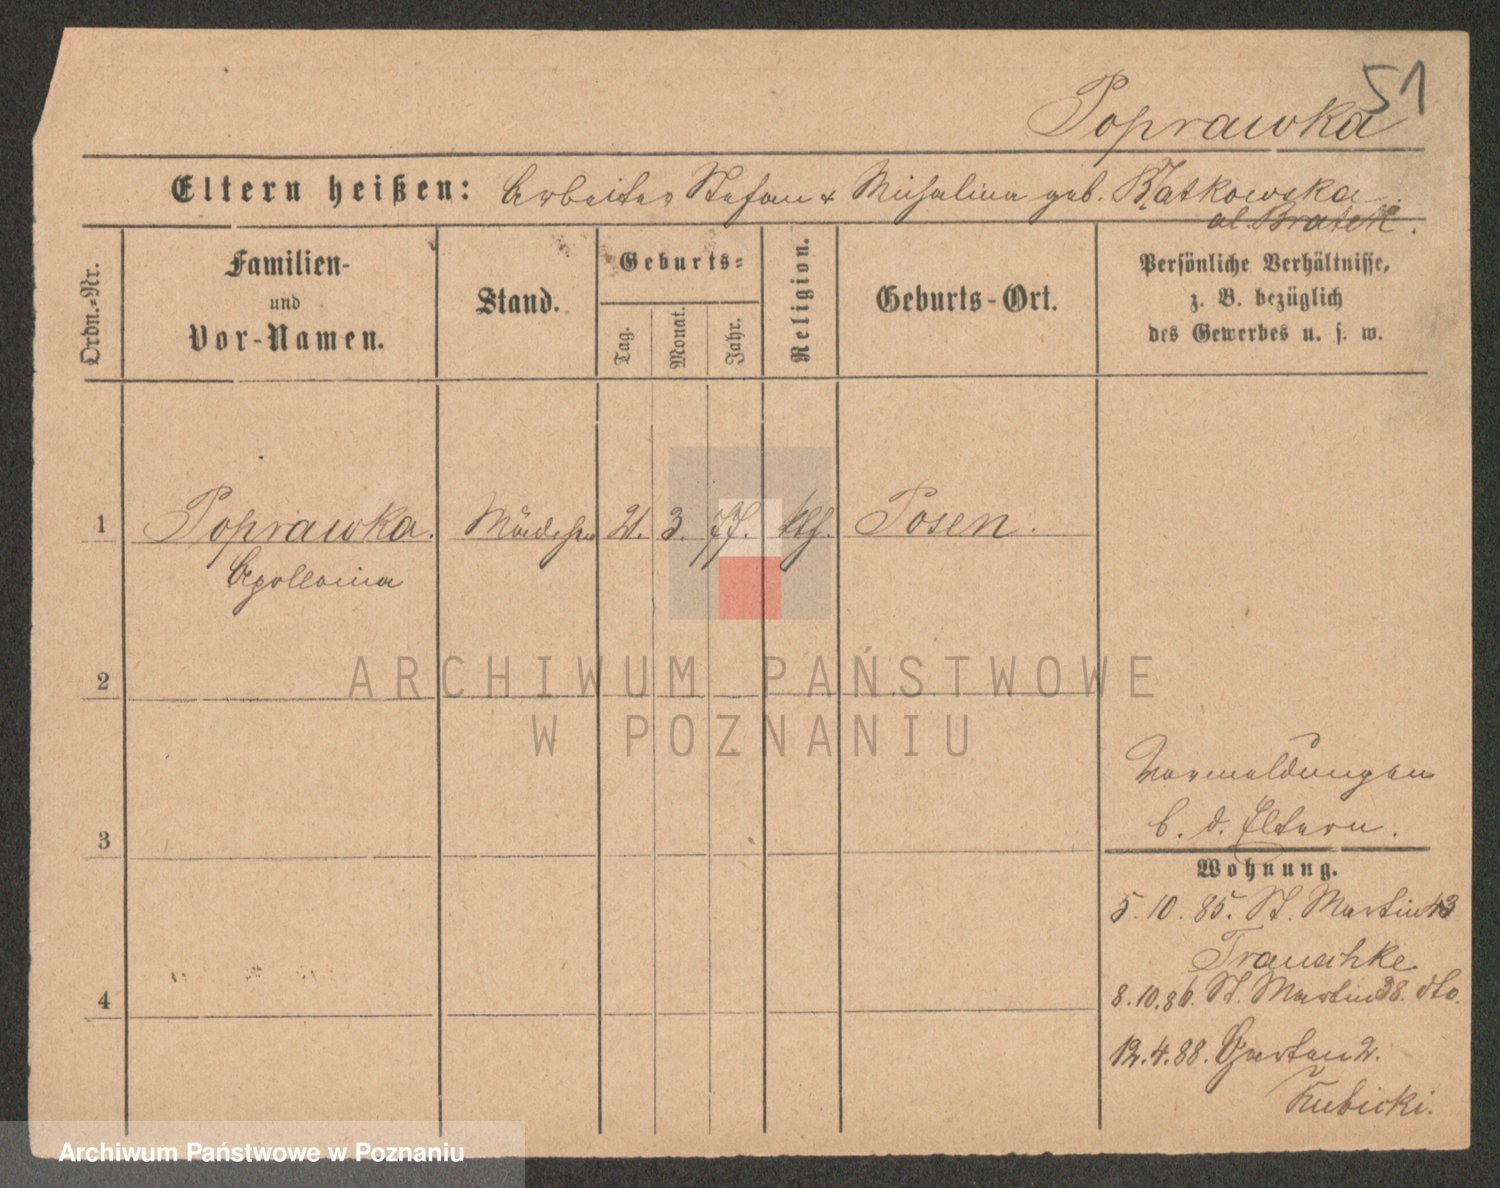 51
Poprawka
Eltern heißen: Arbeiter Stefan & Michalina geb. Ratkowska
al. Bratek.
Ordn.-Nr.
Familien-
und
Vor-Namen.
Stand.
Geburts-
Tag.
Monat.
Jahr.
Religion.
Geburts-Ort.
Persönliche Verhältnisse,
z. B. bezüglich
des Gewerbes u. s. w.
1 Poprawka. Mädchen 21. 3. 77. klg. Posen.
Apollonia
2
ARCHIWUM PAŃSTWOWE
W POZNANIU
Vormeldungen
3 b. d. Eltern.
Wohnung.
5.10.85. St. Martin 43
Trauschke
4 8.10.86. St. Martin 38. dto.
12.4.88. Garten 2.
Kubicki.
Archiwum Państwowe w Poznaniu